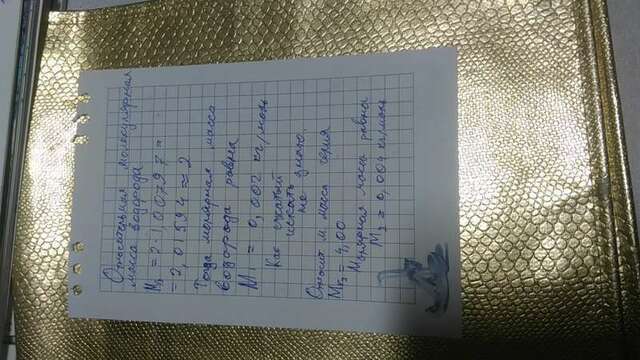 Относительная молекулярная
масса водорода
= 2·1,00797 =
= 2,01594 ≈ 2
Тогда молярная масса
водорода равна
M₁ = 0,002 кг/моль
Как сжатый
искать
не знаю.
Относит м. масса гелия
= 4,00
Молярная масса равна
M₂ = 0,004 кг/моль